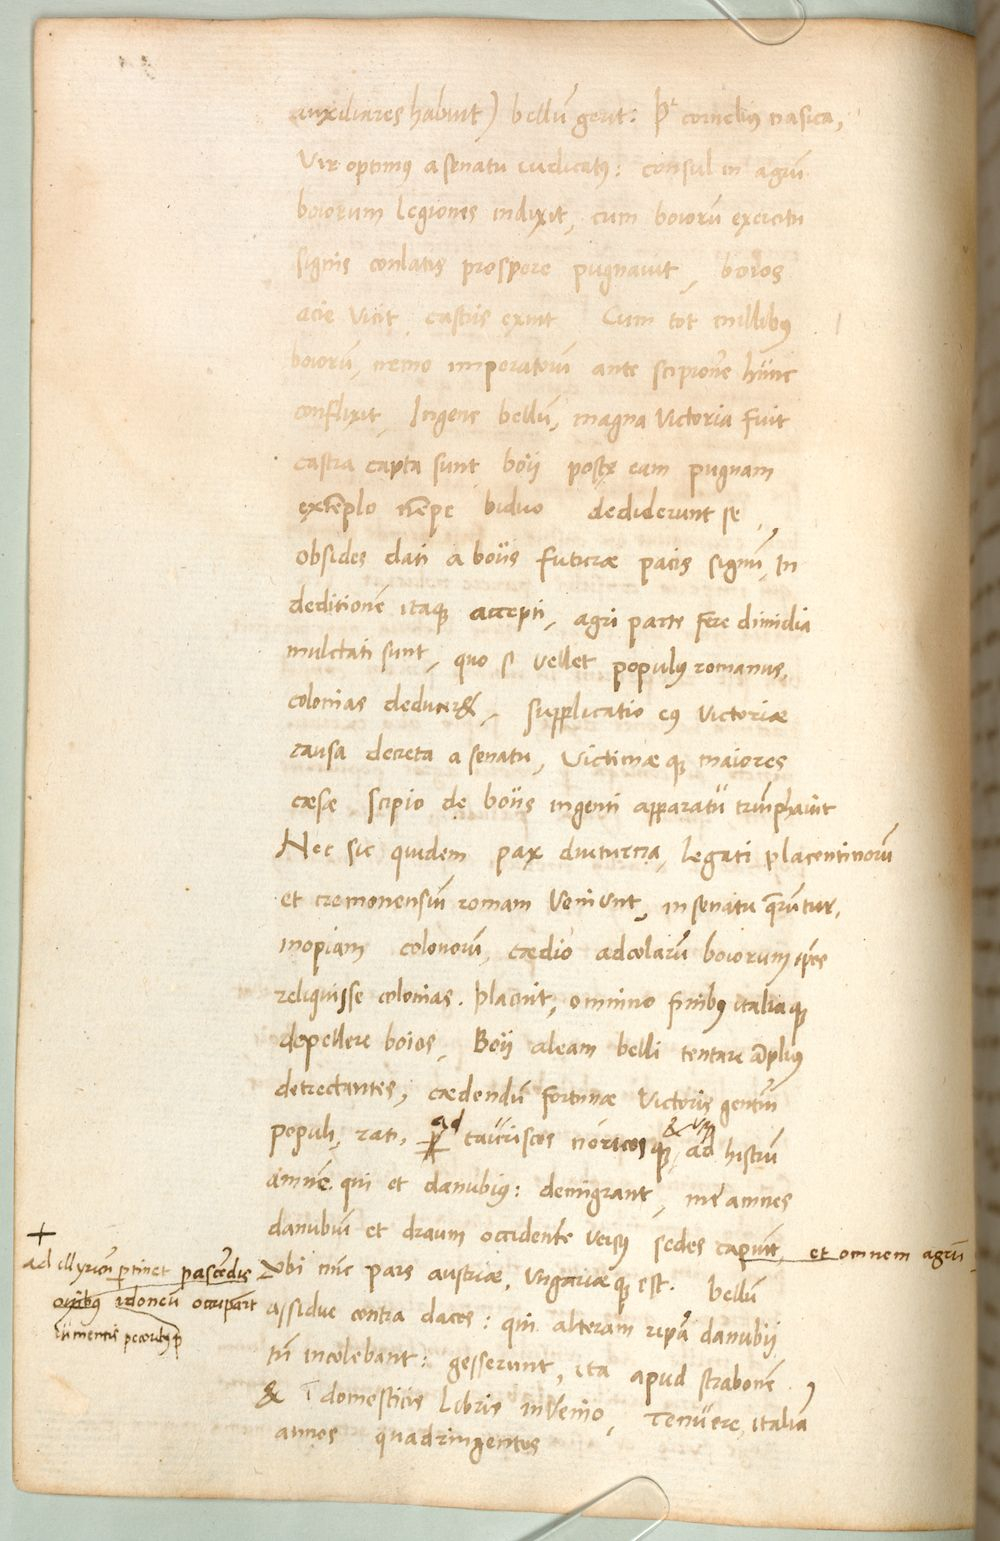 auxiliares habuit) bellū gerit: Pͭ cornelius nasica,
Vir optimꝰ a senatu iudicatꝰ: consul in agrū
boiorum legiones indixit, cum boiorū exercitu
signis conlatis prospere pugnavit, boios
acie vicit castris exuit Cum tot millibꝰ
boiorū, nemo imperatorū ante scipionē hunc
conflixit, Ingens bellū, magna victoria fuit
castra capta sunt boii post eam pugnam
extēplo nēpe biduo dediderunt se,
obsides dati a boiis futuræ pacis signū, In
deditionē itaqꝫ accepti, agri parte fere dimidia
mulctati sunt, quo si vellet populꝰ romanus,
colonias deducer&, supplicatio eiꝰ victoriæ
causa decreta a senatu, victimæ qꝫ maiores
cæsæ scipio de boiis ingenti apparatu triūphavit
Nec sic quidem pax diuturna, legati placentinorū
et cremonensiū romam veniunt, in senatu querūtur,
inopiam colonorū, tædio adcolarū boiorum
reliquisse colonias. placuit, omnino finibꝰ italiæqꝫ
depellere boios, Boii aleam belli tentare āplius
detrectantes, cædendū fortunæ victoris gentiū
populi, rati, ad tauriscos noricosqꝫ, ad histrū
amnē qui et danubius: demigrant, inť amnes
danubiū et draum occidente versꝰ sedes capiūt, et omnem agrū
+
ad illyricū ꝑtinet pascēdis
ouibꝰ idoneū occupart
iumentis pecoribꝰqꝫ
ubi nūc pars austriæ, ungariæqꝫ est. bellū
assidue contra daces: qui alteram ripā danubii
tū incolebant: gesserunt, ita apud strabonē,
& ī domesticis libris invenio, Tenuere italiā
annos quadringentos